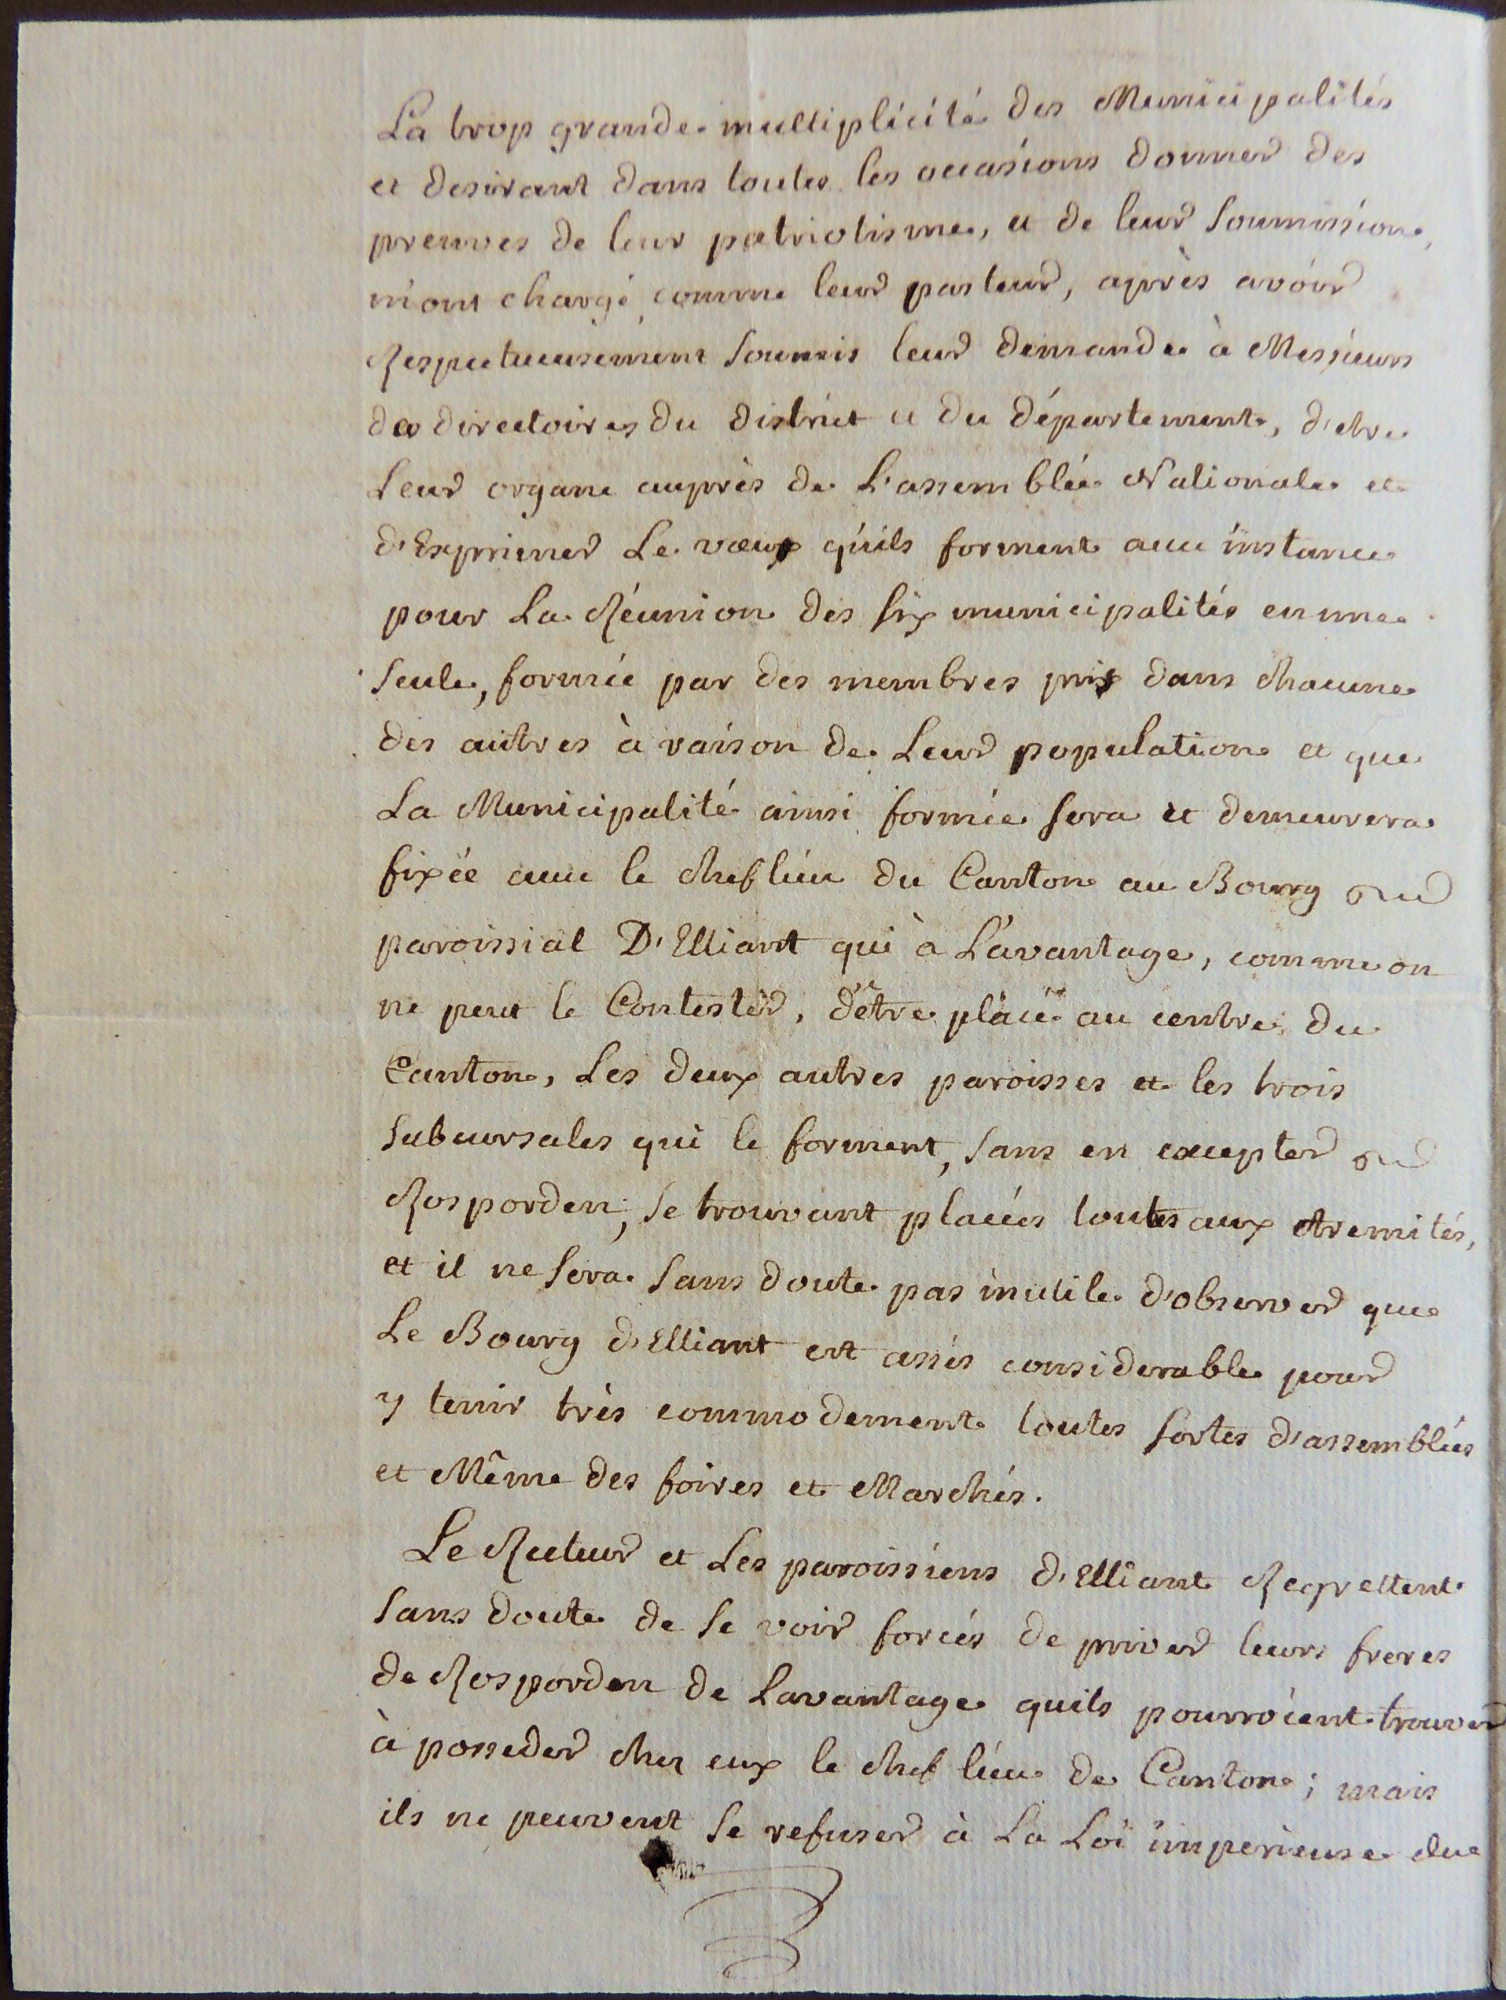 La trop grande multiplicité des Municipalités
et desirant dans toutes les occasions donner des
preuves de leur patriotisme, et de leur Soumission,
m'ont chargé comme leur pasteur, après avoir
Respectueusement Soumis leur demande à Messieurs
des directoires du district et du département, d'etre
Leur organe auprès de L'assemblée Nationale et
d'Exprimer Le vœux qu'ils forment avec instance
pour La Réunion des six municipalités en une
Seule, formée par des membres pris dans chacune
des autres à raison de Leur population et que
La Municipalité ainsi formée sera et demeurera
fixée avec le chef lieu du Canton au Bourg
paroissial D'Elliant qui à L'avantage, comme on
ne peut le Contester, d'être placé au centre du
Canton, Les deux autres paroisses et les trois
Subcursales qui le forment, Sans en excepter
Rosporden, se trouvant placées toutes aux etremités,
et il ne Sera Sans doute pas inutile d'observer que
Le Bourg d'Elliant est assés considerable pour
y tenir très commodement toutes sortes d'assemblées
et Même des foires et Marchés.
Le Recteur et Les paroissiens d'Elliant Regrettent
Sans doute de se voir forcés de priver leurs freres
de Rosporden de Lavantage quils pourroient trouver
à posseder chez eux le chef lieu de Canton; mais
ils ne peuvent se refuser à La Loi imperieuse du